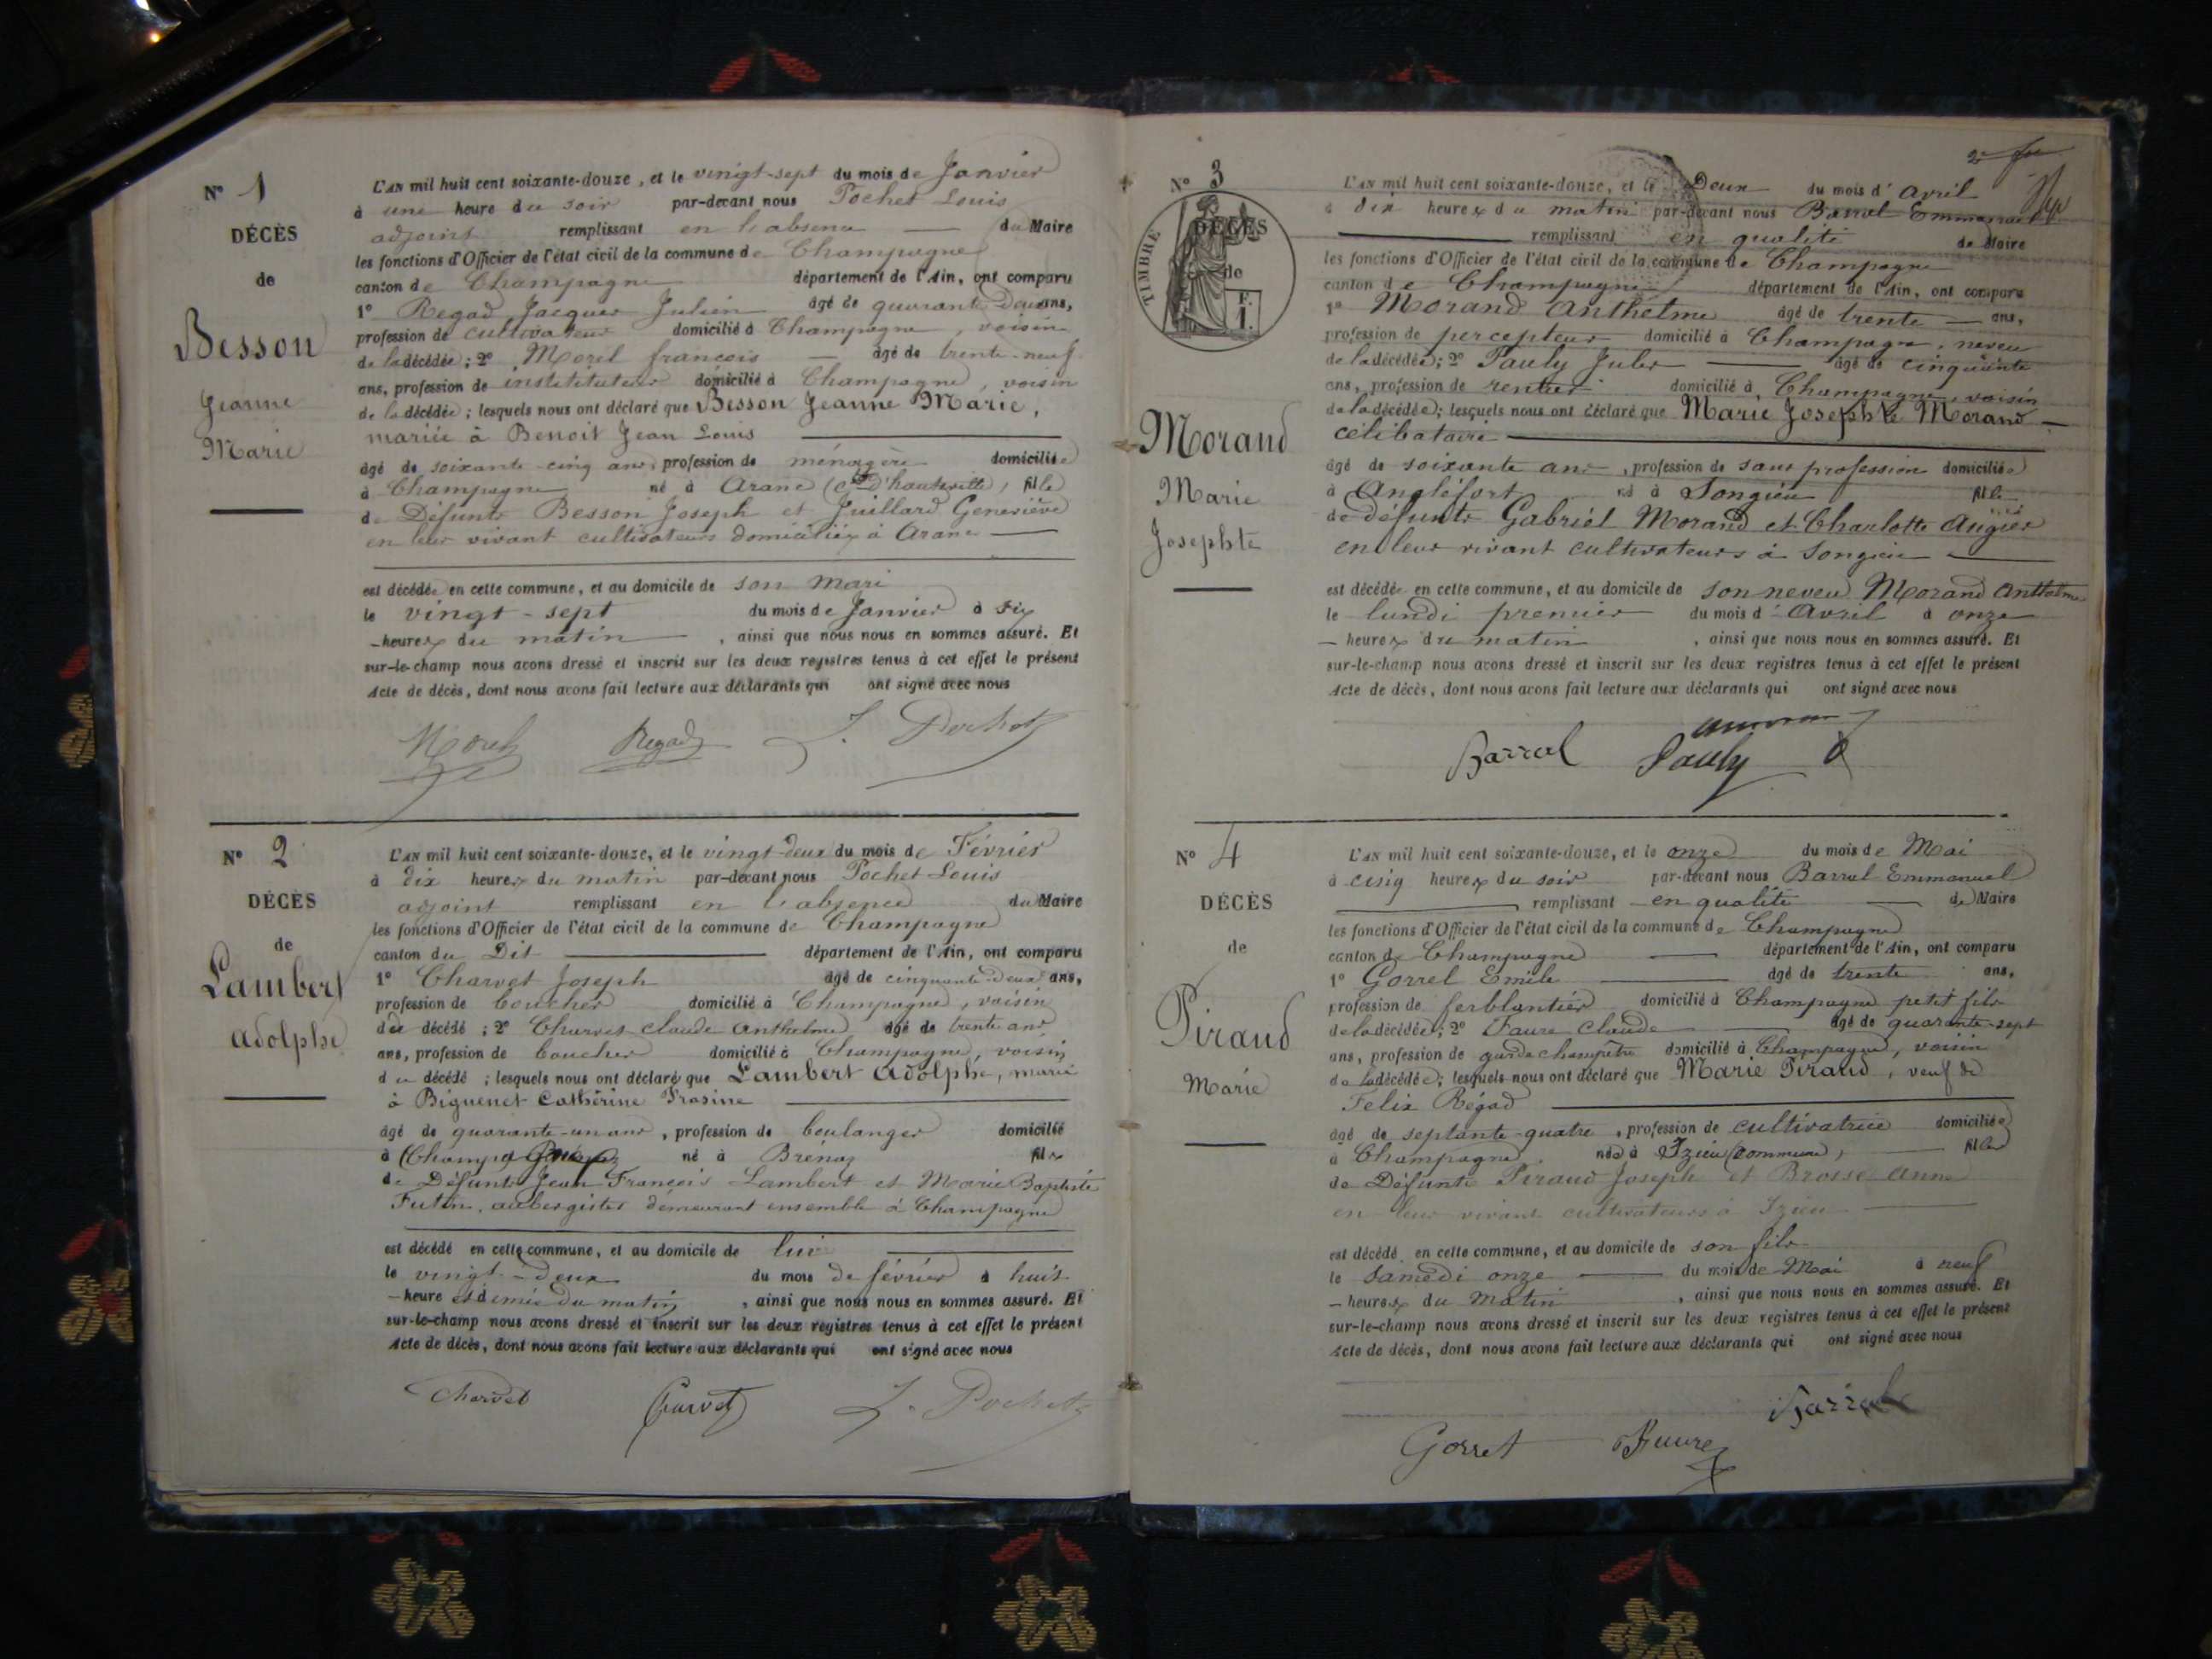 N° 1
DÉCÈS
de
Besson
Jeanne
Marie
L'AN mil huit cent soixante-douze, et le vingt-sept du mois de Janvier
à une heure du soir par-devant nous Pochet Louis
adjoint remplissant en l'absence du Maire
les fonctions d'Officier de l'état civil de la commune de Champagne
canton de Champagne département de l'Ain, ont comparu
1° Regad Jacques Julien âgé de quarante-deux ans,
profession de cultivateur domicilié à Champagne, voisin
de la décédée; 2° Morel françois âgé de trente-neuf
ans, profession de institituteur domicilié à Champagne, voisin
de la décédée; lesquels nous ont déclaré que Besson Jeanne Marie,
mariée à Benoit Jean Louis
âgé de soixante-cinq ans, profession de ménagère domiciliée
à Champagne né à Arane (Con d'hauteville), fille
de Défunts Besson Joseph et Juillard Geneviève
en leur vivant cultivateurs domiciliés à Arane
est décédée en cette commune, et au domicile de son mari
le vingt-sept du mois de Janvier à six
heures du matin, ainsi que nous nous en sommes assuré. Et
sur-le-champ nous avons dressé et inscrit sur les deux registres tenus à cet effet le présent
Acte de décès, dont nous avons fait lecture aux déclarants qui ont signé avec nous
Morel Regad L. Pochet
N° 2
DÉCÈS
de
Lambert
Adolphe
L'AN mil huit cent soixante-douze, et le vingt-deux du mois de Février
à dix heures du matin par-devant nous Pochet Louis
adjoint remplissant en l'absence du Maire
les fonctions d'Officier de l'état civil de la commune de Champagne
canton du Dit département de l'Ain, ont comparu
1° Charvet Joseph âgé de cinquante-deux ans,
profession de boucher domicilié à Champagne, voisin
du décédé; 2° Charvet claude Anthelme âgé de trente ans
ans, profession de boucher domicilié à Champagne, voisin
du décédé; lesquels nous ont déclaré que Lambert Adolphe, marié
à Biguenet Cathérine Frasine
âgé de quarante-un ans, profession de boulanger domicilié
à Champagne né à Brénaz fils
de Défunts Jean François Lambert et Marie Baptiste
Futin, aubergistes démeurant ensemble à Champagne
est décédé en cette commune, et au domicile de lui
le vingt-deux du mois de février à huit
heure et demie du matin, ainsi que nous nous en sommes assuré. Et
sur-le-champ nous avons dressé et inscrit sur les deux registres tenus à cet effet le présent
Acte de décès, dont nous avons fait lecture aux déclarants qui ont signé avec nous
Charvet Charvet L. Pochet
2e
N° 3
TIMBRE
DÉCÈS
de
Morand
Marie
Josephte
L'AN mil huit cent soixante-douze, et le Deux du mois d'Avril
à dix heures du matin par-devant nous Barral Emmanuel
remplissant en qualité de Maire
les fonctions d'Officier de l'état civil de la commune de Champagne
canton de Champagne département de l'Ain, ont comparu
1° Morand Anthelme âgé de trente ans,
profession de percepteur domicilié à Champagne, neveu
de la décédée; 2° Pauly Jules âgé de cinquante
ans, profession de rentier domicilié à Champagne, voisin
de la décédée; lesquels nous ont déclaré que Marie Josephte Morand
célibataire
âgé de soixante ans, profession de sans profession domiciliée
à Anglefort né à Songieu fille
de défunts Gabriel Morand et Charlotte Augier
en leur vivant cultivateurs à Songieu
est décédée en cette commune, et au domicile de son neveu Morand Anthelme
le lundi premier du mois d'Avril à onze
heures du matin, ainsi que nous nous en sommes assuré. Et
sur-le-champ nous avons dressé et inscrit sur les deux registres tenus à cet effet le présent
Acte de décès, dont nous avons fait lecture aux déclarants qui ont signé avec nous
Barral Pauly
N° 4
DÉCÈS
de
Piraud
Marie
L'AN mil huit cent soixante-douze, et le onze du mois de Mai
à cinq heures du soir par-devant nous Barral Emmanuel
remplissant en qualité de Maire
les fonctions d'Officier de l'état civil de la commune de Champagne
canton de Champagne département de l'Ain, ont comparu
1° Gorrel Emile âgé de trente ans,
profession de ferblantier domicilié à Champagne petit fils
de la décédée; 2° Faure Claude âgé de quarante-sept
ans, profession de garde champêtre domicilié à Champagne, voisin
de la décédée; lesquels nous ont déclaré que Marie Piraud, veuf de
Felix Régad
âgé de septante-quatre, profession de cultivatrice domiciliée
à Champagne née à Izieu (commune), fille
de Défunts Piraud Joseph et Brosse Anne
en leur vivant cultivateurs à Izieu
est décédé en cette commune, et au domicile de son fils
le Samedi onze du mois de Mai à neuf
heures du matin, ainsi que nous nous en sommes assuré. Et
sur-le-champ nous avons dressé et inscrit sur les deux registres tenus à cet effet le présent
Acte de décès, dont nous avons fait lecture aux déclarants qui ont signé avec nous
Barral
Gorret Faure